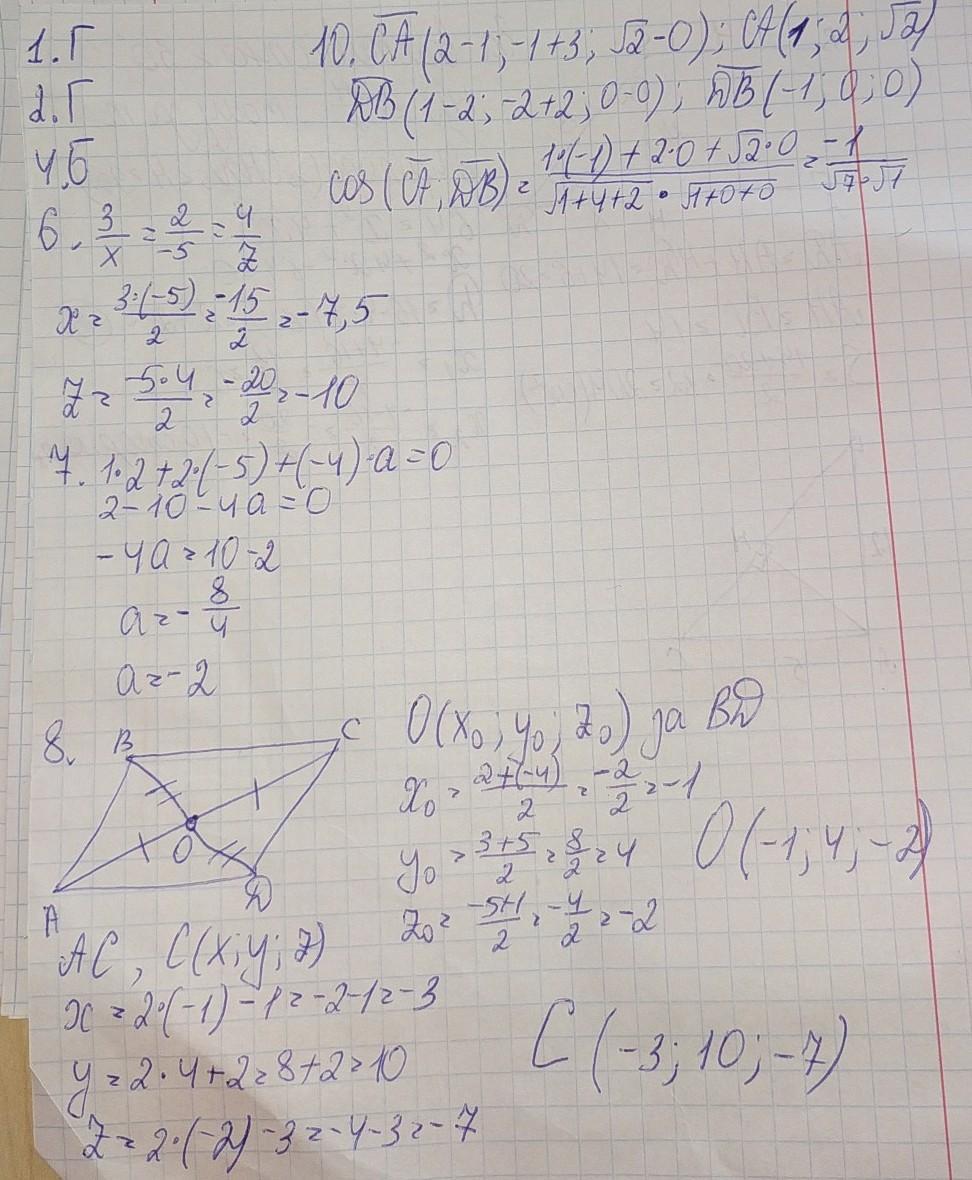 1. Г
2. Г
4. Б
6. 3/x = 2/-5 = 4/z
x = 3·(-5)/2 = -15/2 = -7,5
z = -5·4/2 = -20/2 = -10
7. 1·2 + 2·(-5) + (-4)·a = 0
2 - 10 - 4a = 0
-4a = 10 - 2
a = -8/4
a = -2
10. CA(2-1; -1+3; √2-0); CA(1; 2; √2)
DB(1-2; -2+2; 0-0); DB(-1; 0; 0)
cos(CA; DB) = 1·(-1) + 2·0 + √2·0 / √1+4+2 · √1+0+0 = -1 / √7·√1
8. B C
O
A D
O(x₀; y₀; z₀) за BD
x₀ = 2+(-4)/2 = -2/2 = -1
y₀ = 3+5/2 = 8/2 = 4
z₀ = -5+1/2 = -4/2 = -2
O(-1; 4; -2)
AC, C(x; y; z)
x = 2·(-1) - 1 = -2-1 = -3
y = 2·4+2 = 8+2 = 10
z = 2·(-2) - 3 = -4-3 = -7
C(-3; 10; -7)